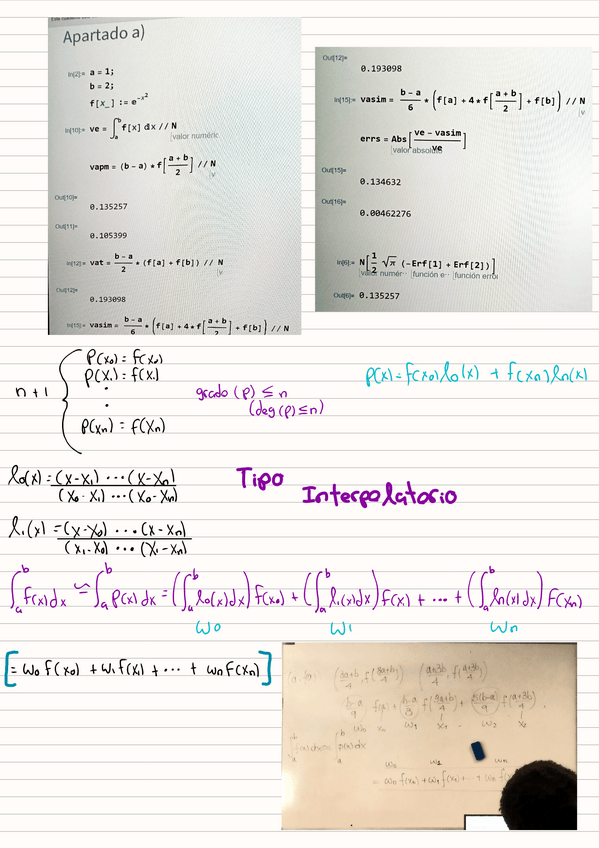 Apartado a)
In[2]:= a = 1;
b = 2;
f[x_] := e^(-x^2)
In[10]:= ve = ∫_a^b f[x] dx // N
valor numéric
vapm = (b - a) * f[(a + b)/2] // N
Out[10]=
0.135257
Out[11]=
0.105399
In[12]:= vat = (b - a)/2 * (f[a] + f[b]) // N
Out[12]=
0.193098
In[15]:= vasim = (b - a)/6 * (f[a] + 4 * f[(a + b)/2] + f[b]) // N
Out[12]=
0.193098
In[15]:= vasim = (b - a)/6 * (f[a] + 4 * f[(a + b)/2] + f[b]) // N
errs = Abs[(ve - vasim)/ve]
valor absoluto
Out[15]=
0.134632
Out[16]=
0.00462276
In[6]:= N[1/2 √π (-Erf[1] + Erf[2])]
valor numér··· función e··· función erro
Out[6]= 0.135257
n+1
P(x0) = f(x0)
P(x1) = f(x1)
.
.
P(xn) = f(xn)
grado (p) ≤ n
(deg(p) ≤ n)
P(x) = f(x0) l0(x) + f(xn) ln(x)
l0(x) = (x-x1) ··· (x-xn) / (x0-x1) ··· (x0-xn)
Tipo
Interpolatorio
l1(x) = (x-x0) ··· (x-xn) / (x1-x0) ··· (x1-xn)
∫_a^b f(x) dx ≃ ∫_a^b P(x) dx = (∫_a^b l0(x) dx) f(x0) + (∫_a^b l1(x) dx) f(x1) + ··· + (∫_a^b ln(x) dx) f(xn)
ω0 ω1 ωn
[= ω0 f(x0) + ω1 f(x1) + ··· + ωn f(xn)]
(3a+b)/4, f((3a+b)/4) ((a+3b)/4, f((a+3b)/4))
ω0 x0 ω1 x1 ω2 x2
ω0 ω1 ωn
= ω0 f(x0) + ω1 f(x1) + ··· + ωn f(x